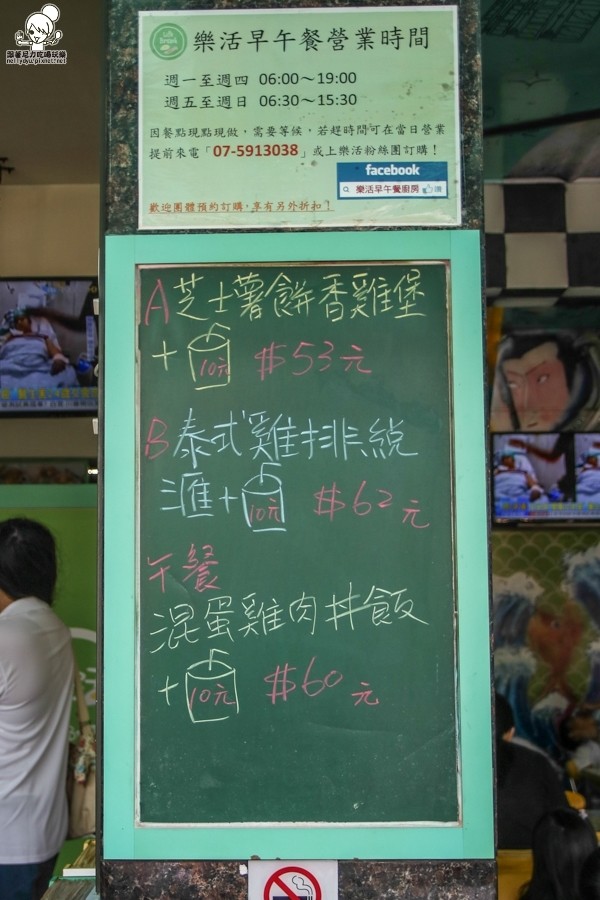 跟著尼力吃喝玩樂
nellydyu.pixnet.net
樂活早午餐營業時間
週一至週四 06:00~19:00
週五至週日 06:30~15:30
因餐點現點現做,需要等候,若趕時間可在當日營業
提前來電「07-5913038」或上樂活粉絲團訂購!
facebook
樂活早午餐廚房 讚
歡迎團體預約訂購,享有另外折扣!
A芝士薯餅香雞堡
+10元 $53元
B泰式雞排總
匯+10元 $62元
午餐
混蛋雞肉丼飯
+10元 $60元